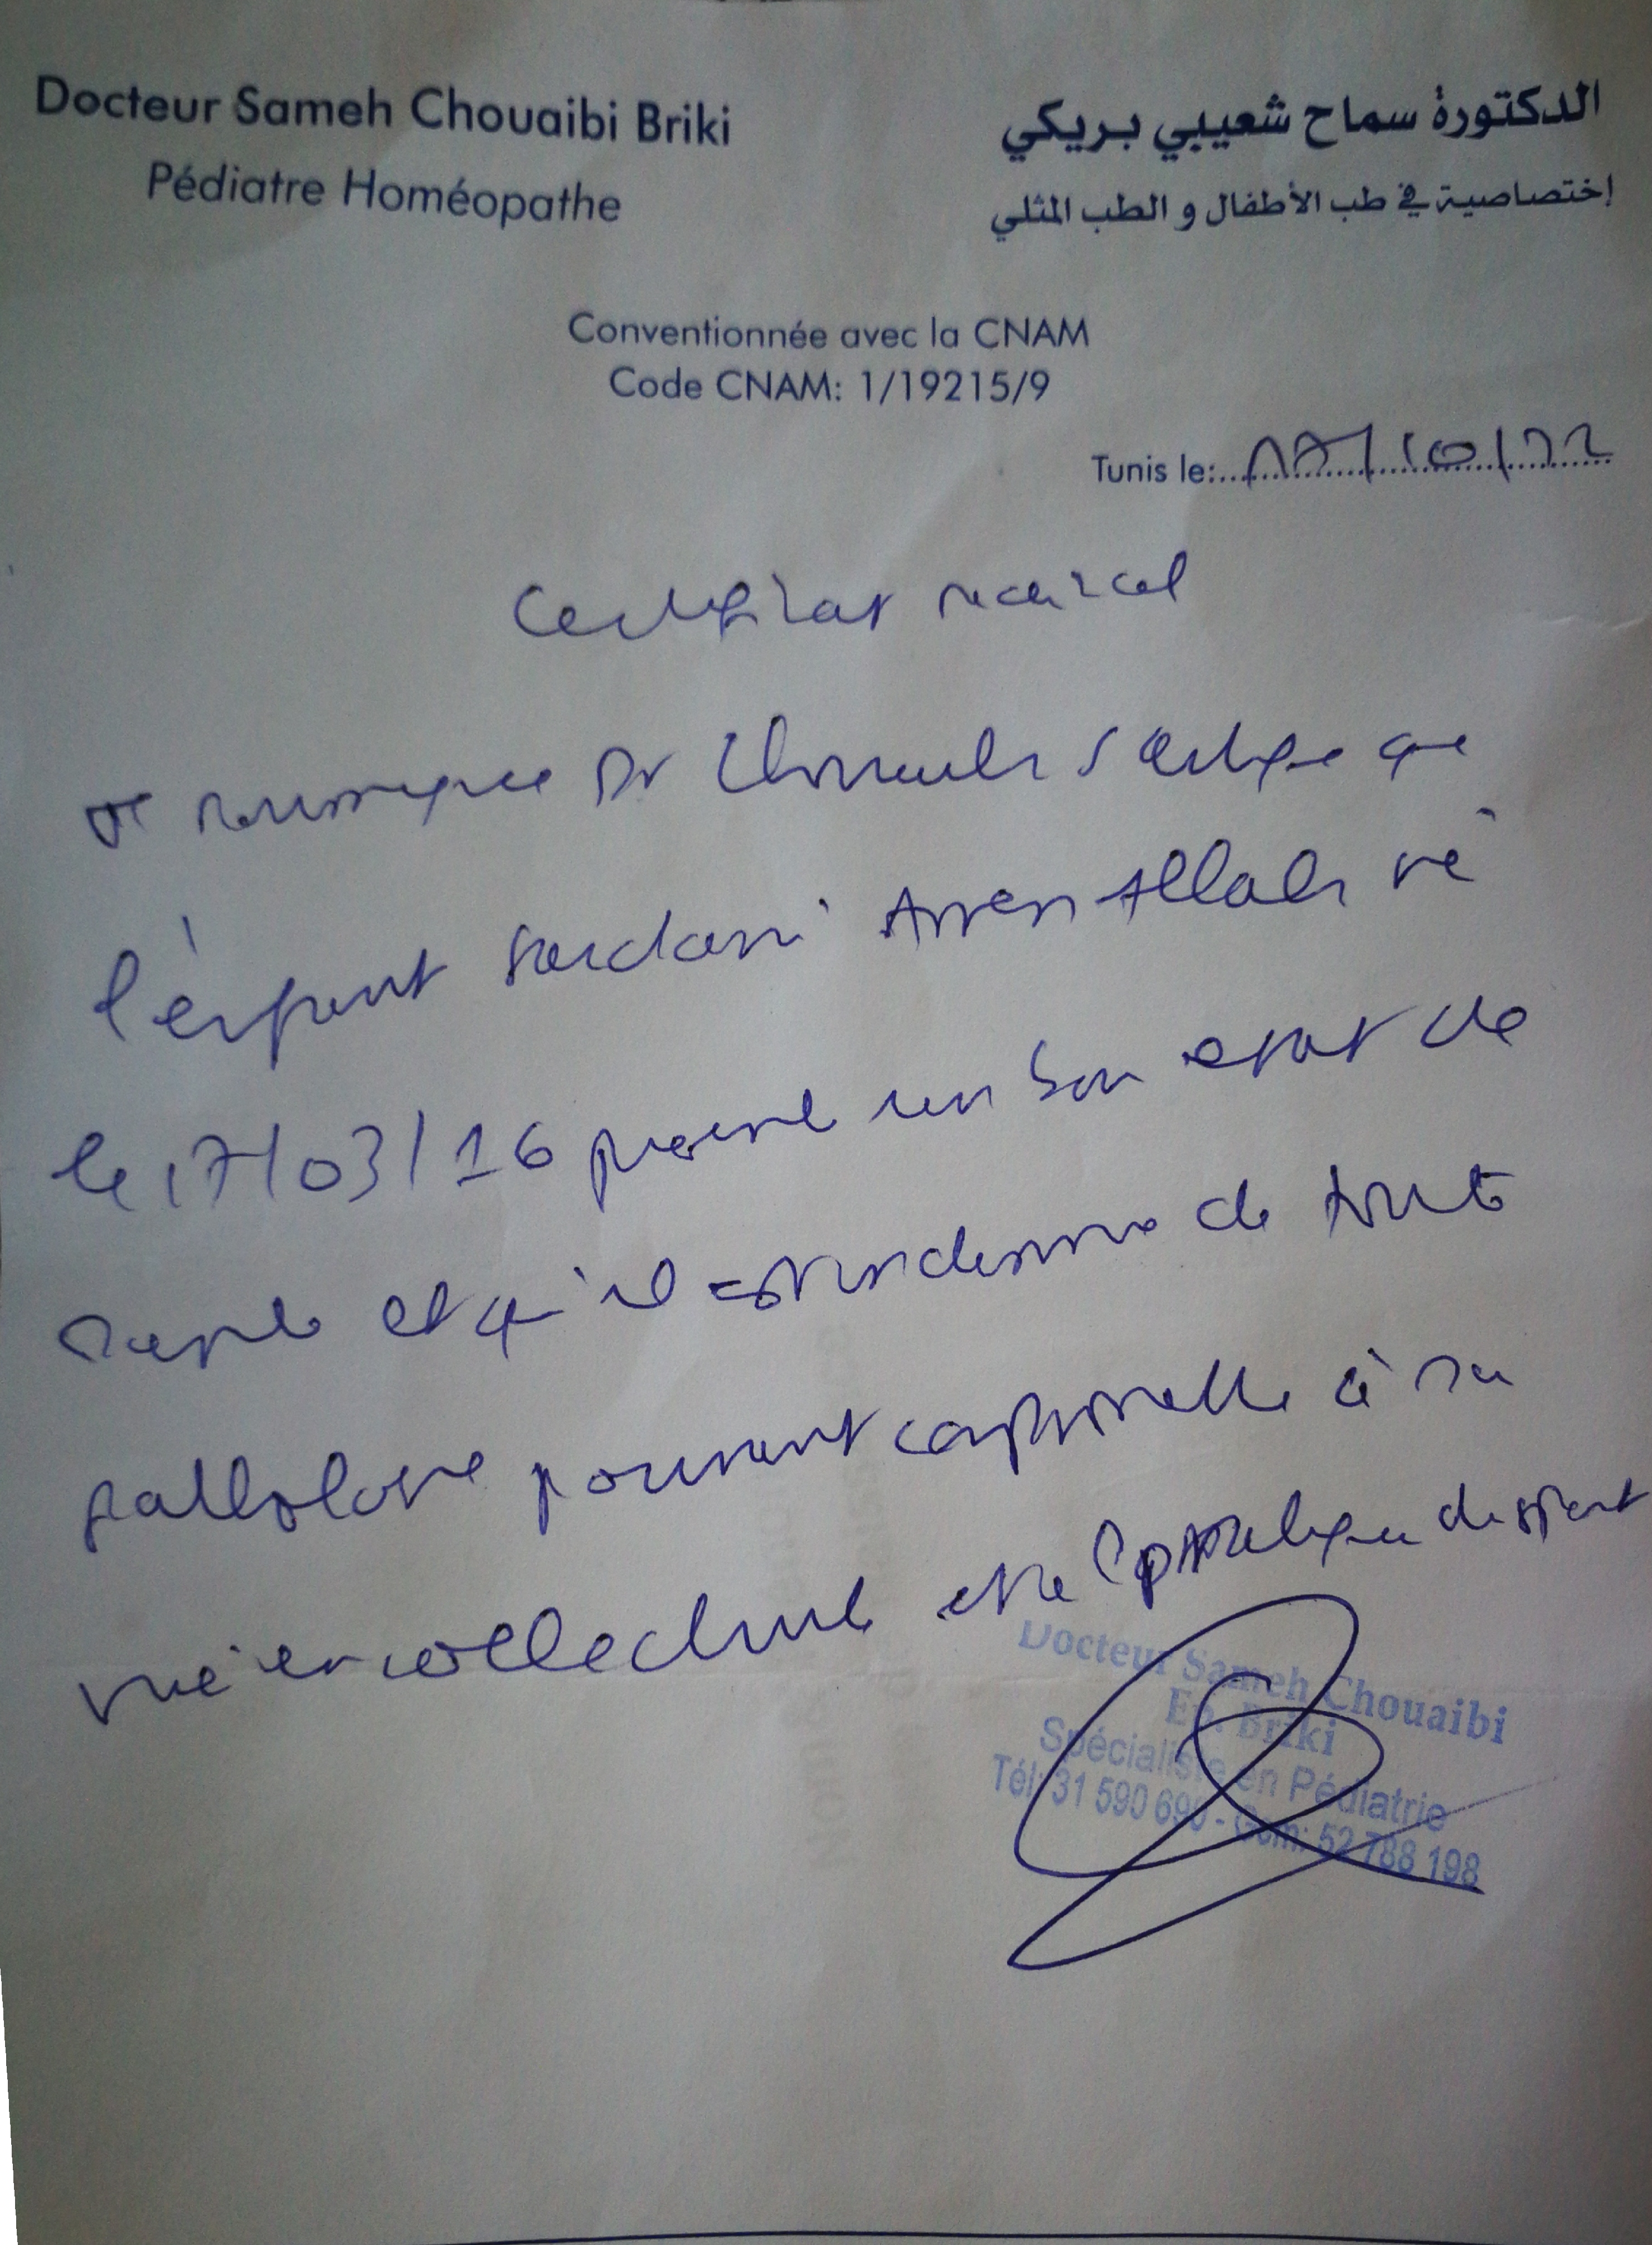 Docteur Sameh Chouaibi Briki
Pédiatre Homéopathe
الدكتورة سماح شعيبي بريكي
إختصاصية في طب الأطفال و الطب المثلي
Conventionnée avec la CNAM
Code CNAM: 1/19215/9
Tunis le: 17/10/22
Certificat médical
Je soussignée Dr Chouaibi S certifie que
l'enfant Saidani Anen Allah né
le 17/03/16 présente un bon état de
santé et qu'il est indemne de toute
pathologie pouvant contre à sa
vie en collectivité et la pratique du sport
Docteur Sameh Chouaibi
Ep. Briki
Spécialiste en Pédiatrie
Tél: 31 590 690 - Gsm: 52 788 198